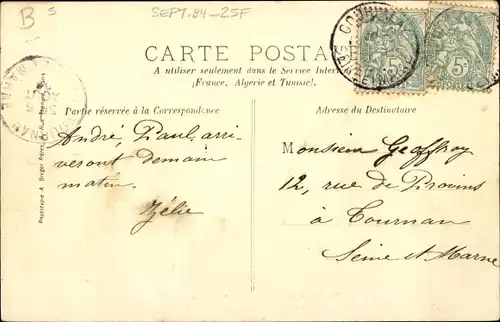 B 5
SEPT. 84-25F
CARTE POSTA
A utiliser seulement dans le Service Inter
(France, Algérie et Tunisie).
Partie réservée à la Correspondance
Adresse du Destinataire
André, Paul, arri-
veront demain
matin.
Zélie
Monsieur Geoffroy
12, rue de Provins
à Tournan
Seine et Marne
5c
5c